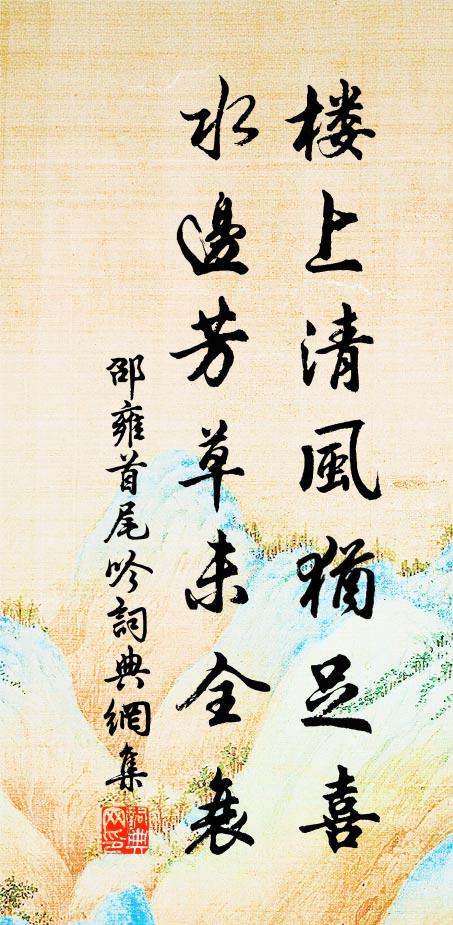 楼上清風猶足喜
水邊芳草未全衰
邵雍首尾吟詞典網集
詞典网印